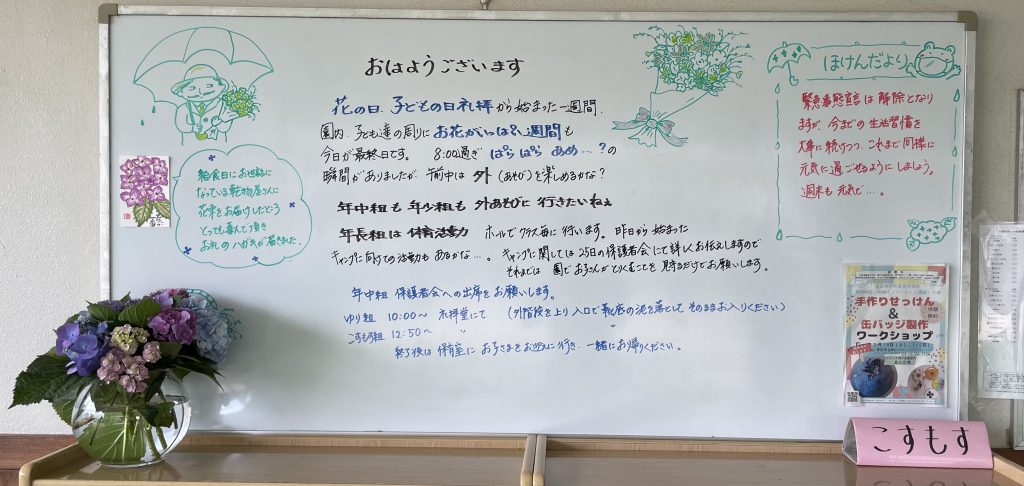 おはようございます
花の日.子どもの日礼拝から始まった一週間.
園内.子ども達の周りにお花がいっぱい週間も
今日が最終日です。 8:00過ぎ ぱらぱら あめ...?の
瞬間がありましたが 午前中は 外(あそび)を楽しめるかな?
年中組も 年少組も 外あそびに 行きたいねぇ
年長組は 体育活動 ホールで クラス毎に 行います。 昨日から 始まった
キャンプに向けての活動も あるかな...。 キャンプに関しては 25日の保護者会にて詳しくお伝えしますので
それまでは 園でお子さんがとりくむことを 見守るだけでお願いします。
年中組 保護者会への出席をお願いします。
ゆり組 10:00〜 礼拝堂にて (外階段を上り 入口で靴底の泥を落として そのままお入りください)
こすもす組 12:50〜 〃 〃
終了後は 保育室に お子さまをお迎えに行き、一緒にお帰りください。
給食日にお世話に
なっている乾物屋さんに
花束をお届けしたところ
とっても喜んで頂き
お礼のハガキが届きました.
ほけんだより
緊急事態宣言は解除となり
ますが、今までの生活習慣を
大事に続けつつ これまで同様に
元気に過ごせるようにしましょう。
週末も元気で...。
手作りせっけん
&
缶バッジ製作
ワークショップ
こすもす